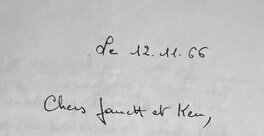 Le 12.11.66
Chers Janett et Ken,